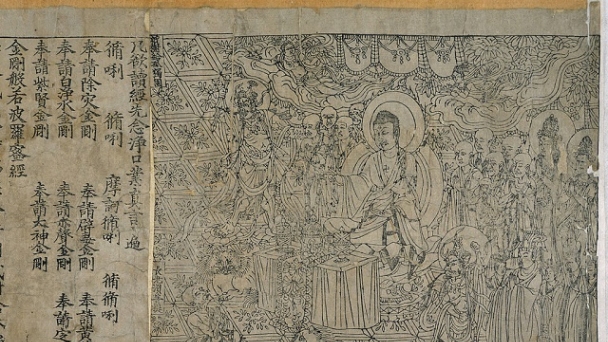 凡欲讀經先念淨口業真言一遍
脩唎 脩唎 摩訶脩唎 脩脩唎
奉請除災金剛 奉請辟毒金剛 奉請黃
奉請白淨水金剛 奉請赤聲金剛 奉請定
奉請紫賢金剛 奉請大神金剛
金剛般若波羅蜜經